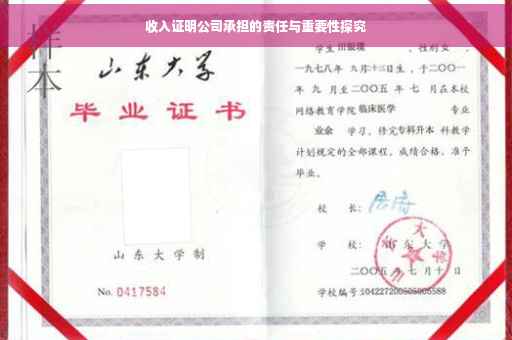 收入证明公司承担的责任与重要性探究
样本
山东大学
毕业证书
山东大学制
No. 0417584
学生 性别女，
一九七八年 九月十三日生，于二〇〇一
年 九 月至二〇〇五 年 七 月在本校
网络教育学院 临床医学 专业
业余 学习，修完专科升本 科教学
计划规定的全部课程，成绩合格，准予
毕业。
校 长：
学 校： 山东大学
二〇〇五年七月十日
学校编号：